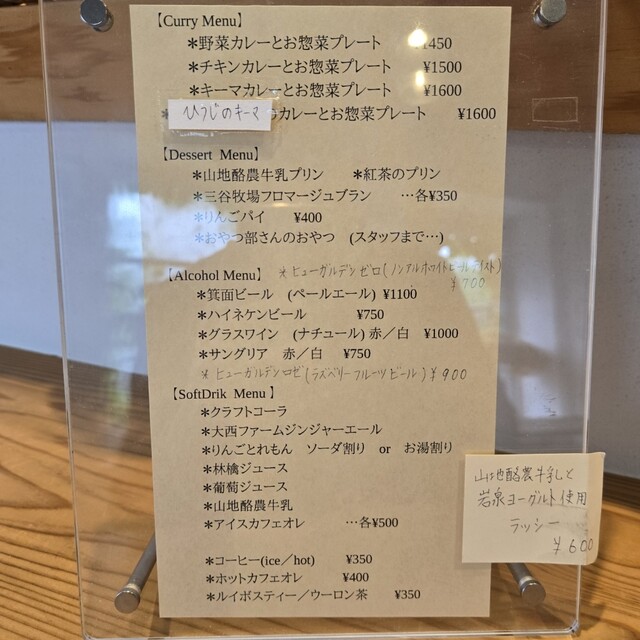 【Curry Menu】
＊野菜カレーとお惣菜プレート ¥1450
＊チキンカレーとお惣菜プレート ¥1500
＊キーマカレーとお惣菜プレート ¥1600
ひつじのキーマ カレーとお惣菜プレート ¥1600
【Dessert Menu】
＊山地酪農牛乳プリン ＊紅茶のプリン
＊三谷牧場フロマージュブラン …各¥350
＊りんごパイ ¥400
＊おやつ部さんのおやつ (スタッフまで…)
【Alcohol Menu】 ＊ヒューガルデンゼロ(ノンアルホワイトビールテイスト)
¥700
＊箕面ビール (ペールエール) ¥1100
＊ハイネケンビール ¥750
＊グラスワイン (ナチュール) 赤／白 ¥1000
＊サングリア 赤／白 ¥750
＊ヒューガルデンロゼ(ラズベリーフルーツビール)¥900
【SoftDrik Menu】
＊クラフトコーラ
＊大西ファームジンジャーエール
＊りんごとれもん ソーダ割り or お湯割り
＊林檎ジュース
＊葡萄ジュース
＊山地酪農牛乳
＊アイスカフェオレ …各¥500
＊コーヒー(ice／hot) ¥350
＊ホットカフェオレ ¥400
＊ルイボスティー／ウーロン茶 ¥350
山地酪農牛乳と
岩泉ヨーグルト使用
ラッシー
¥600